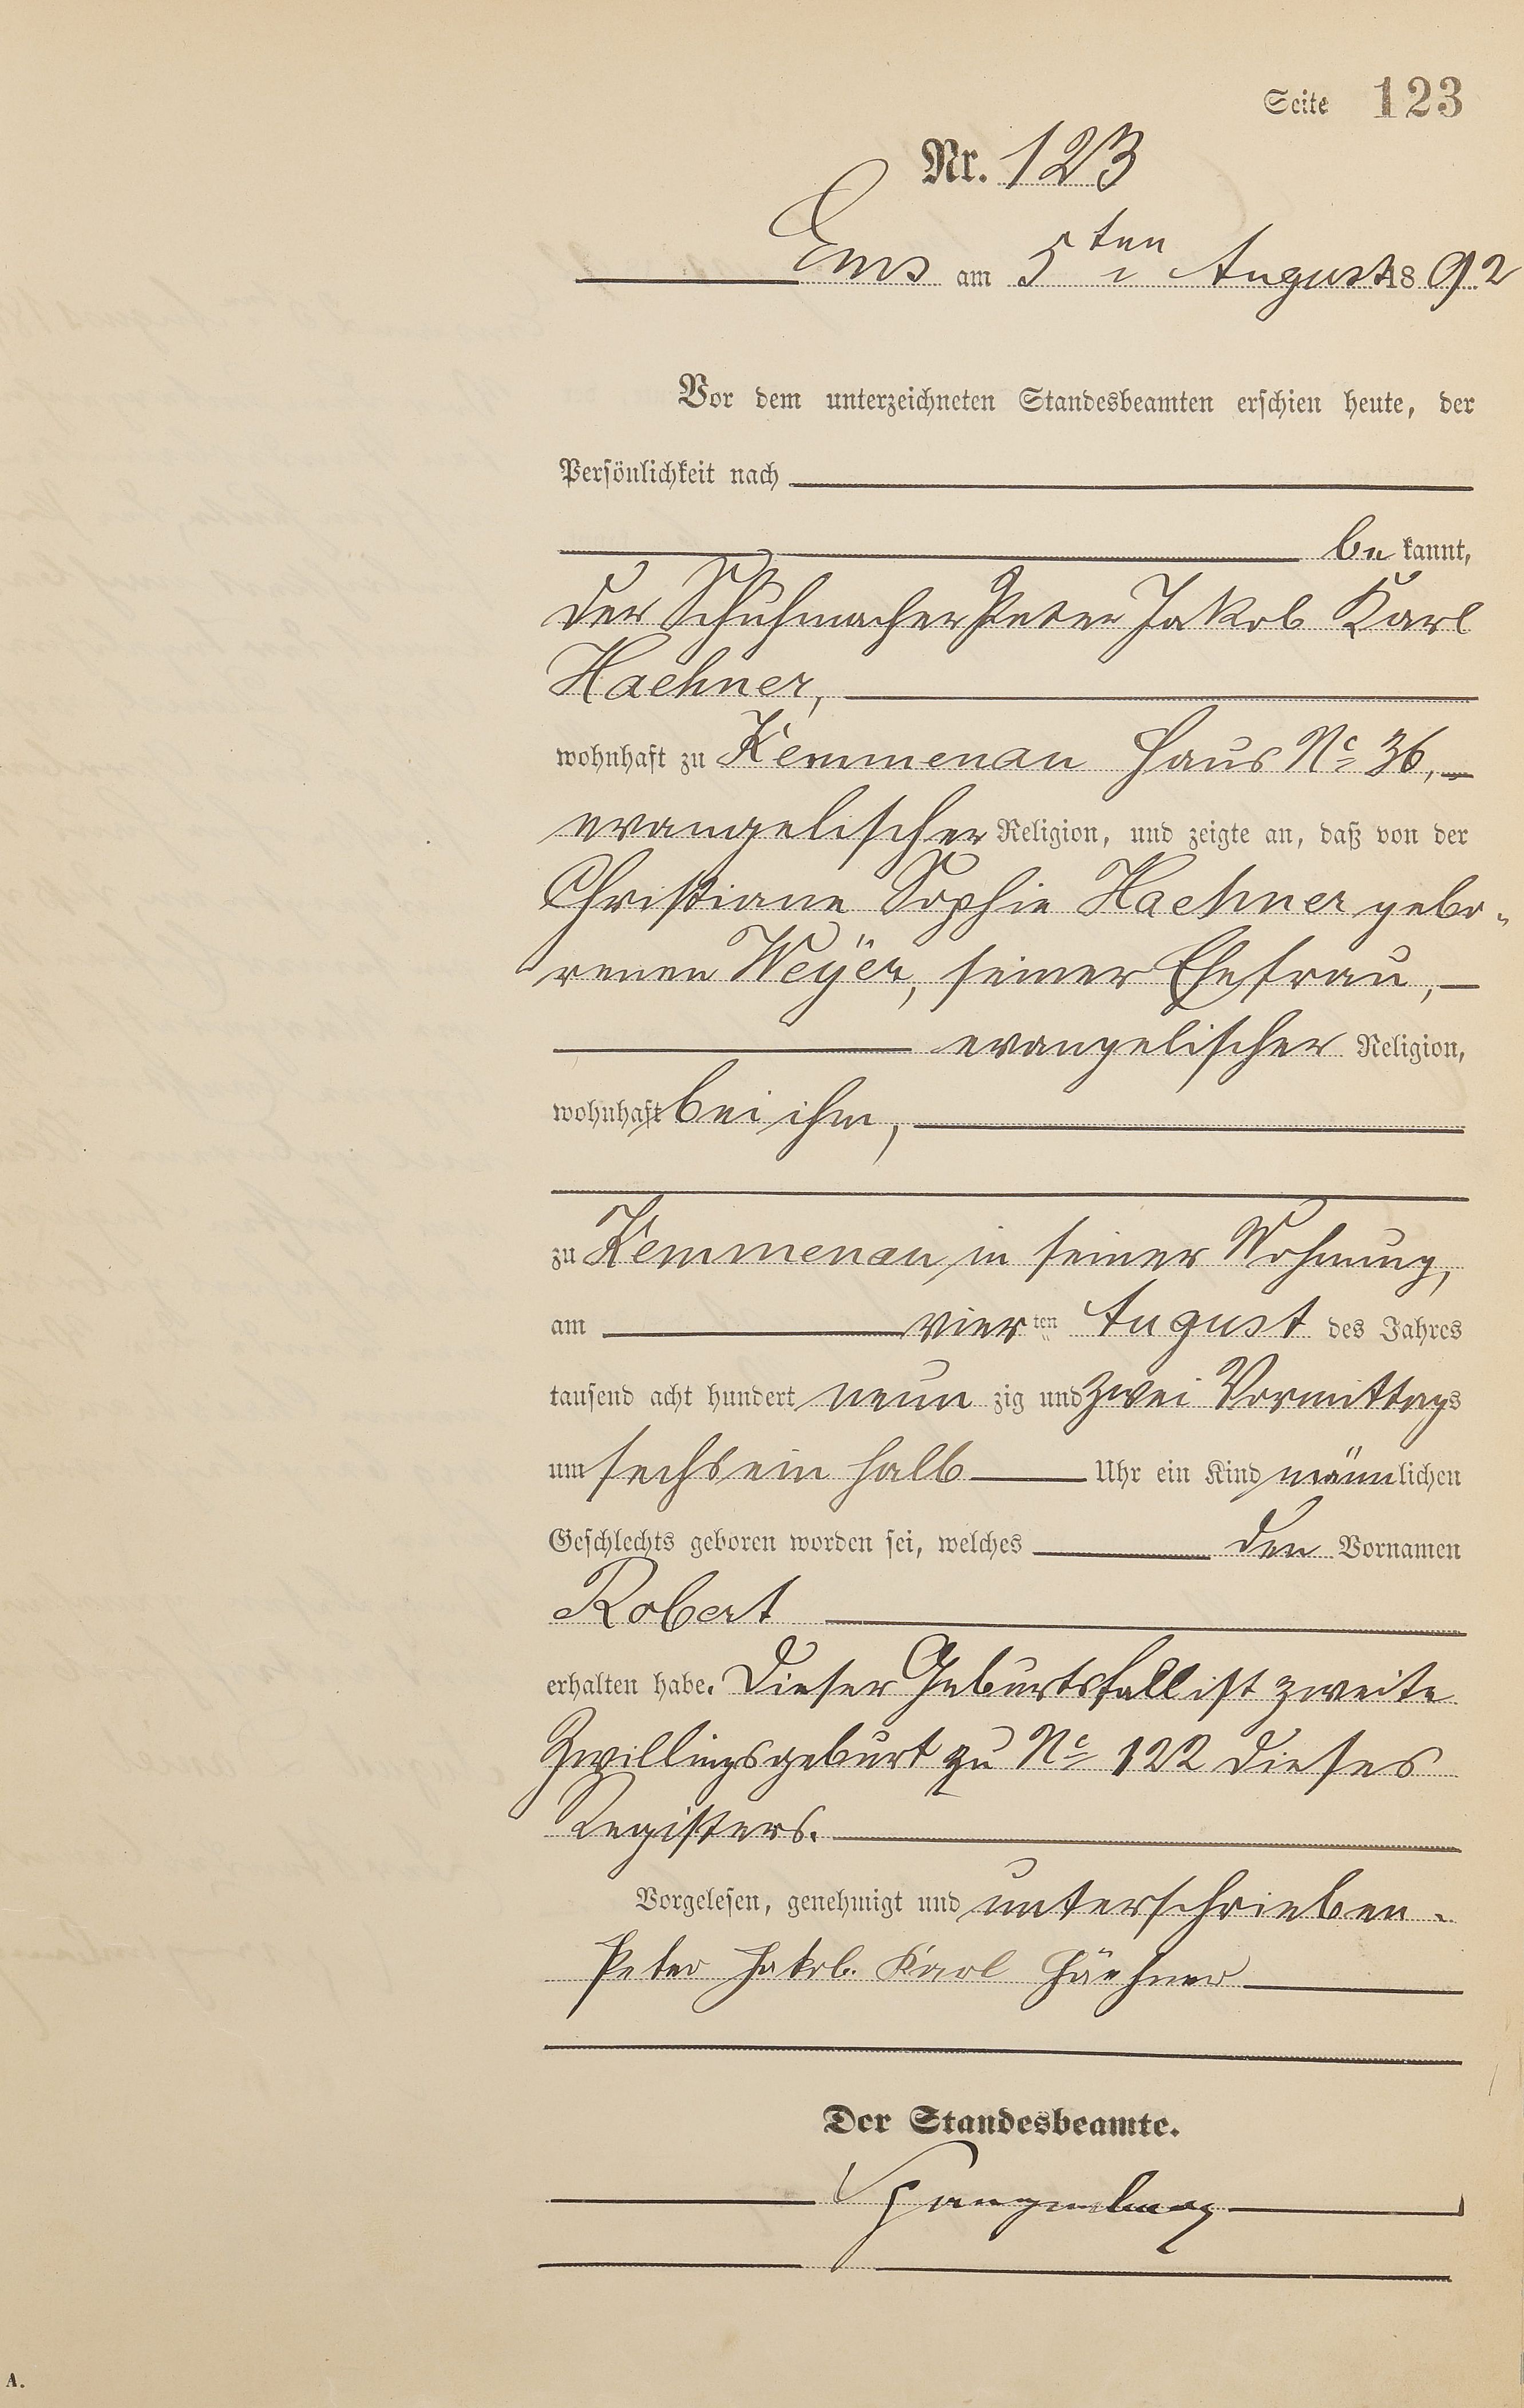 Seite 123
Nr. 123
Ems am 5ten August 1892
Vor dem unterzeichneten Standesbeamten erschien heute, der
Persönlichkeit nach
be kannt,
der Schuhmacher Peter Jakob Karl
Haehner,
wohnhaft zu Kemmenau Haus No 36,
evangelischer Religion, und zeigte an, daß von der
Christiane Sophie Haehner gebo-
renen Weÿer, seiner Ehefrau,
evangelischer Religion,
wohnhaft bei ihm,
zu Kemmenau in seiner Wohnung,
am vier ten August des Jahres
tausend acht hundert neun zig und zwei Vormittags
um sechs ein halb Uhr ein Kind männlichen
Geschlechts geboren worden sei, welches den Vornamen
Robert
erhalten habe. Dieser Geburtsfall ist zweite
Zwillingsgeburt zu No 122 dieses
Registers.
Vorgelesen, genehmigt und unterschrieben.
Peter Jakob Karl Hächner
Der Standesbeamte.
Spangenberg
A.